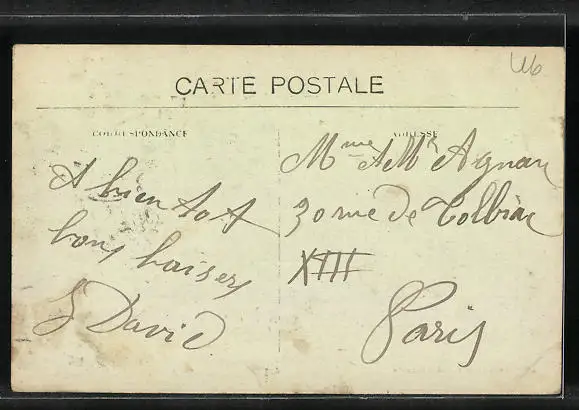 CARTE POSTALE
CORRESPONDANCE
A bien tot
bons baisers
G David
ADRESSE
Mme & Mr Agnan
30 rue de Tolbiac
XIII
Paris